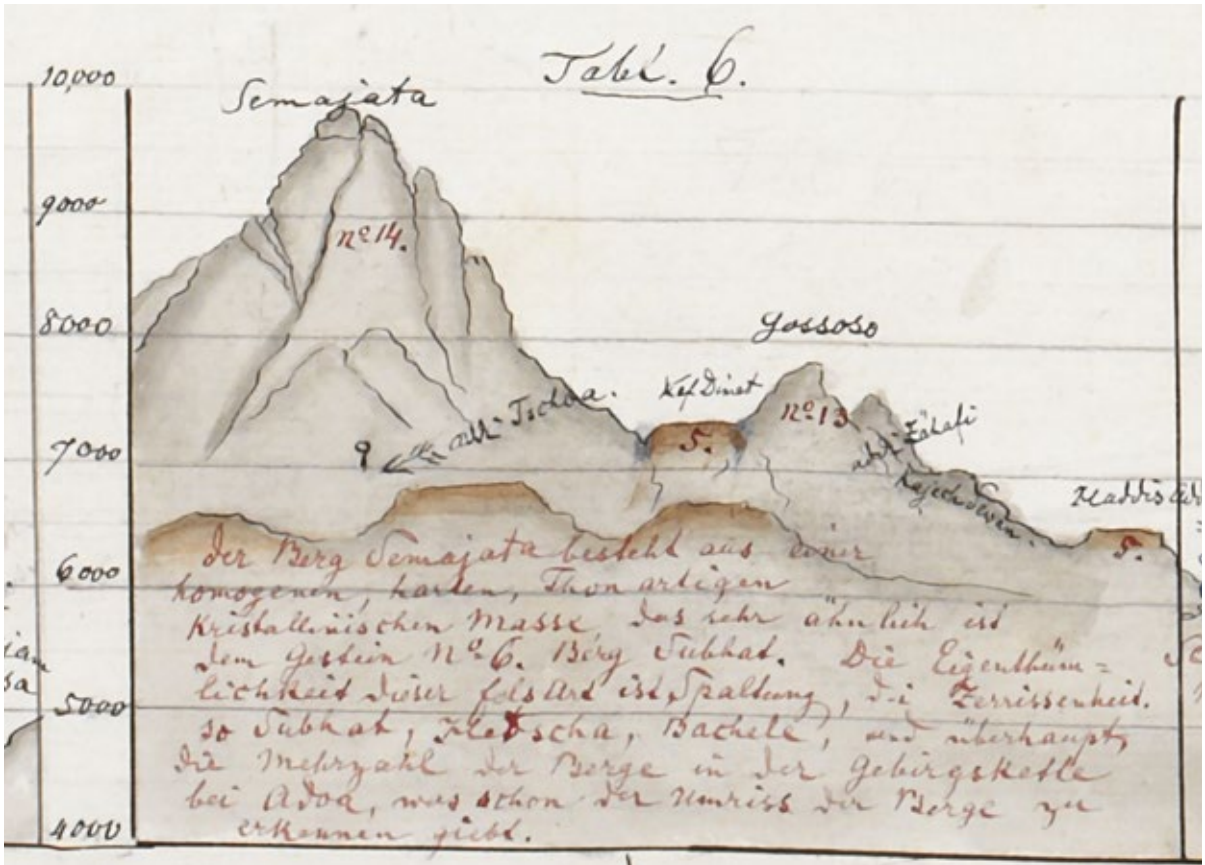 Tabl. 6.
10,000
Semajata
9000
no 14.
8000
Gossoso
Kef Dimet
no 13
Tschoa.
5.
Zähafi
7000
9
Haddis
5.
6000
Der Berg Semajata besteht aus einer
homogenen, harten, Thon artigen
Kristallinischen Masse das sehr ähnlich ist
dem Gestein No 6. Berg Subhat. Die Eigenthüm=
lichkeit dieser Felsart ist Spaltung, die Zerrissenheit.
5000
so Subhat, Bachele, und überhaupt,
die Mehrzahl der Berge in der Gebirgskette
bei Adoa, was schon der Umriss der Berge zu
erkennen giebt.
4000